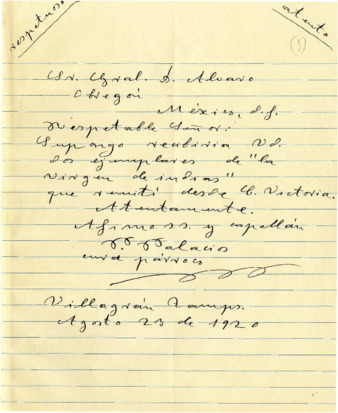 respetuoso
atento
Sr. Gral. D. Alvaro
Obregón
México, d.f.
Respetable Señor:
Supongo recibiría Vd.
dos ejemplares de "la
virgen de indias"
que remití desde C. Victoria.
Atentamente.
Afimo s.s. y capellán
Palacios
cura párroco
Villagrán Tamps.
Agosto 23 de 1920